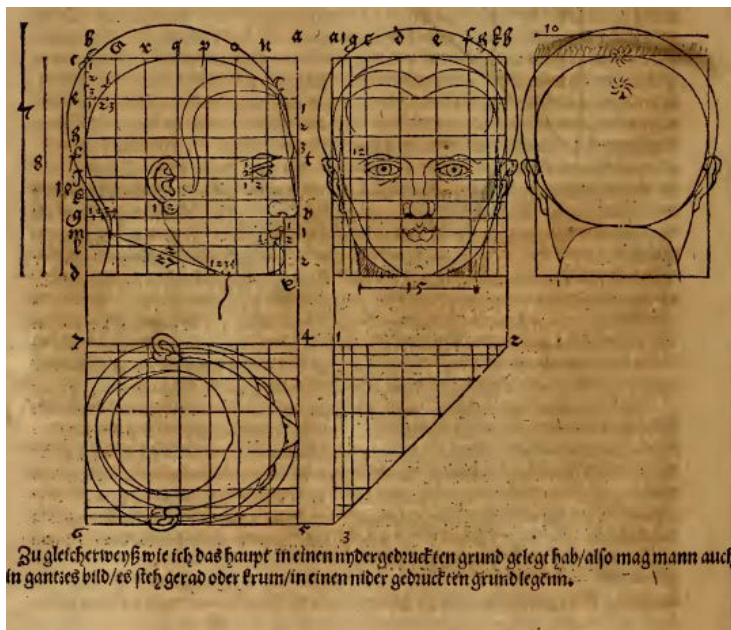 b s r q p o n a a i g c d e f h k b
10
c
1
2
3
k
7
8
18
h
f
t
12
g
m
l
d
15
7 4 1 2
6 5 3
Zu gleicherweyß wie ich das haupt in einen nydergedruckten grund gelegt hab/also mag mann auch
in gantzes bild/es steh gerad oder krum/in einen nider gedruckten grund legenn.